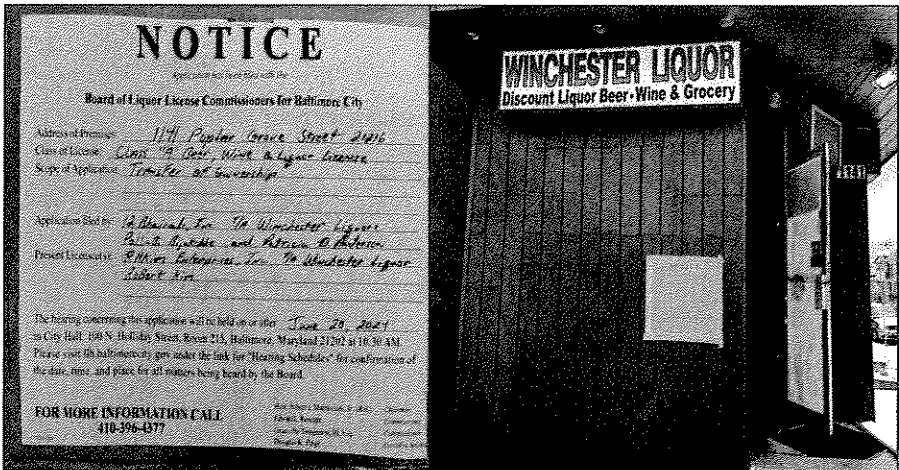 NOTICE
Application has been filed with the
Board of Liquor License Commissioners for Baltimore City
Address of Premises: 1141 Poplar Grove Street 21216
Class of License: Class "A" Beer, Wine & Liquor License
Scope of Application: Transfer of Ownership
Application filed by: Inc. T/A Winchester Liquors
and Patricia
Present Licensee(s): Enterprises, Inc. T/A Winchester Liquor
Robert Kim
The hearing concerning this application will be held on or after June 20, 2024
in City Hall, 100 N. Holliday Street, Room 215, Baltimore, Maryland 21202 at 10:30 AM.
Please visit llb.baltimorecity.gov under the link for "Hearing Schedules" for confirmation of
the date, time, and place for all matters being heard by the Board.
FOR MORE INFORMATION CALL
410-396-4377
WINCHESTER LIQUOR
Discount Liquor Beer•Wine & Grocery
1141